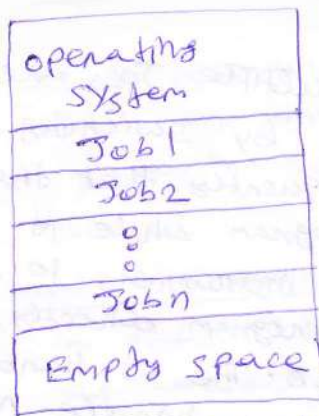 operating
system
Job1
Job2
Jobn
Empty space